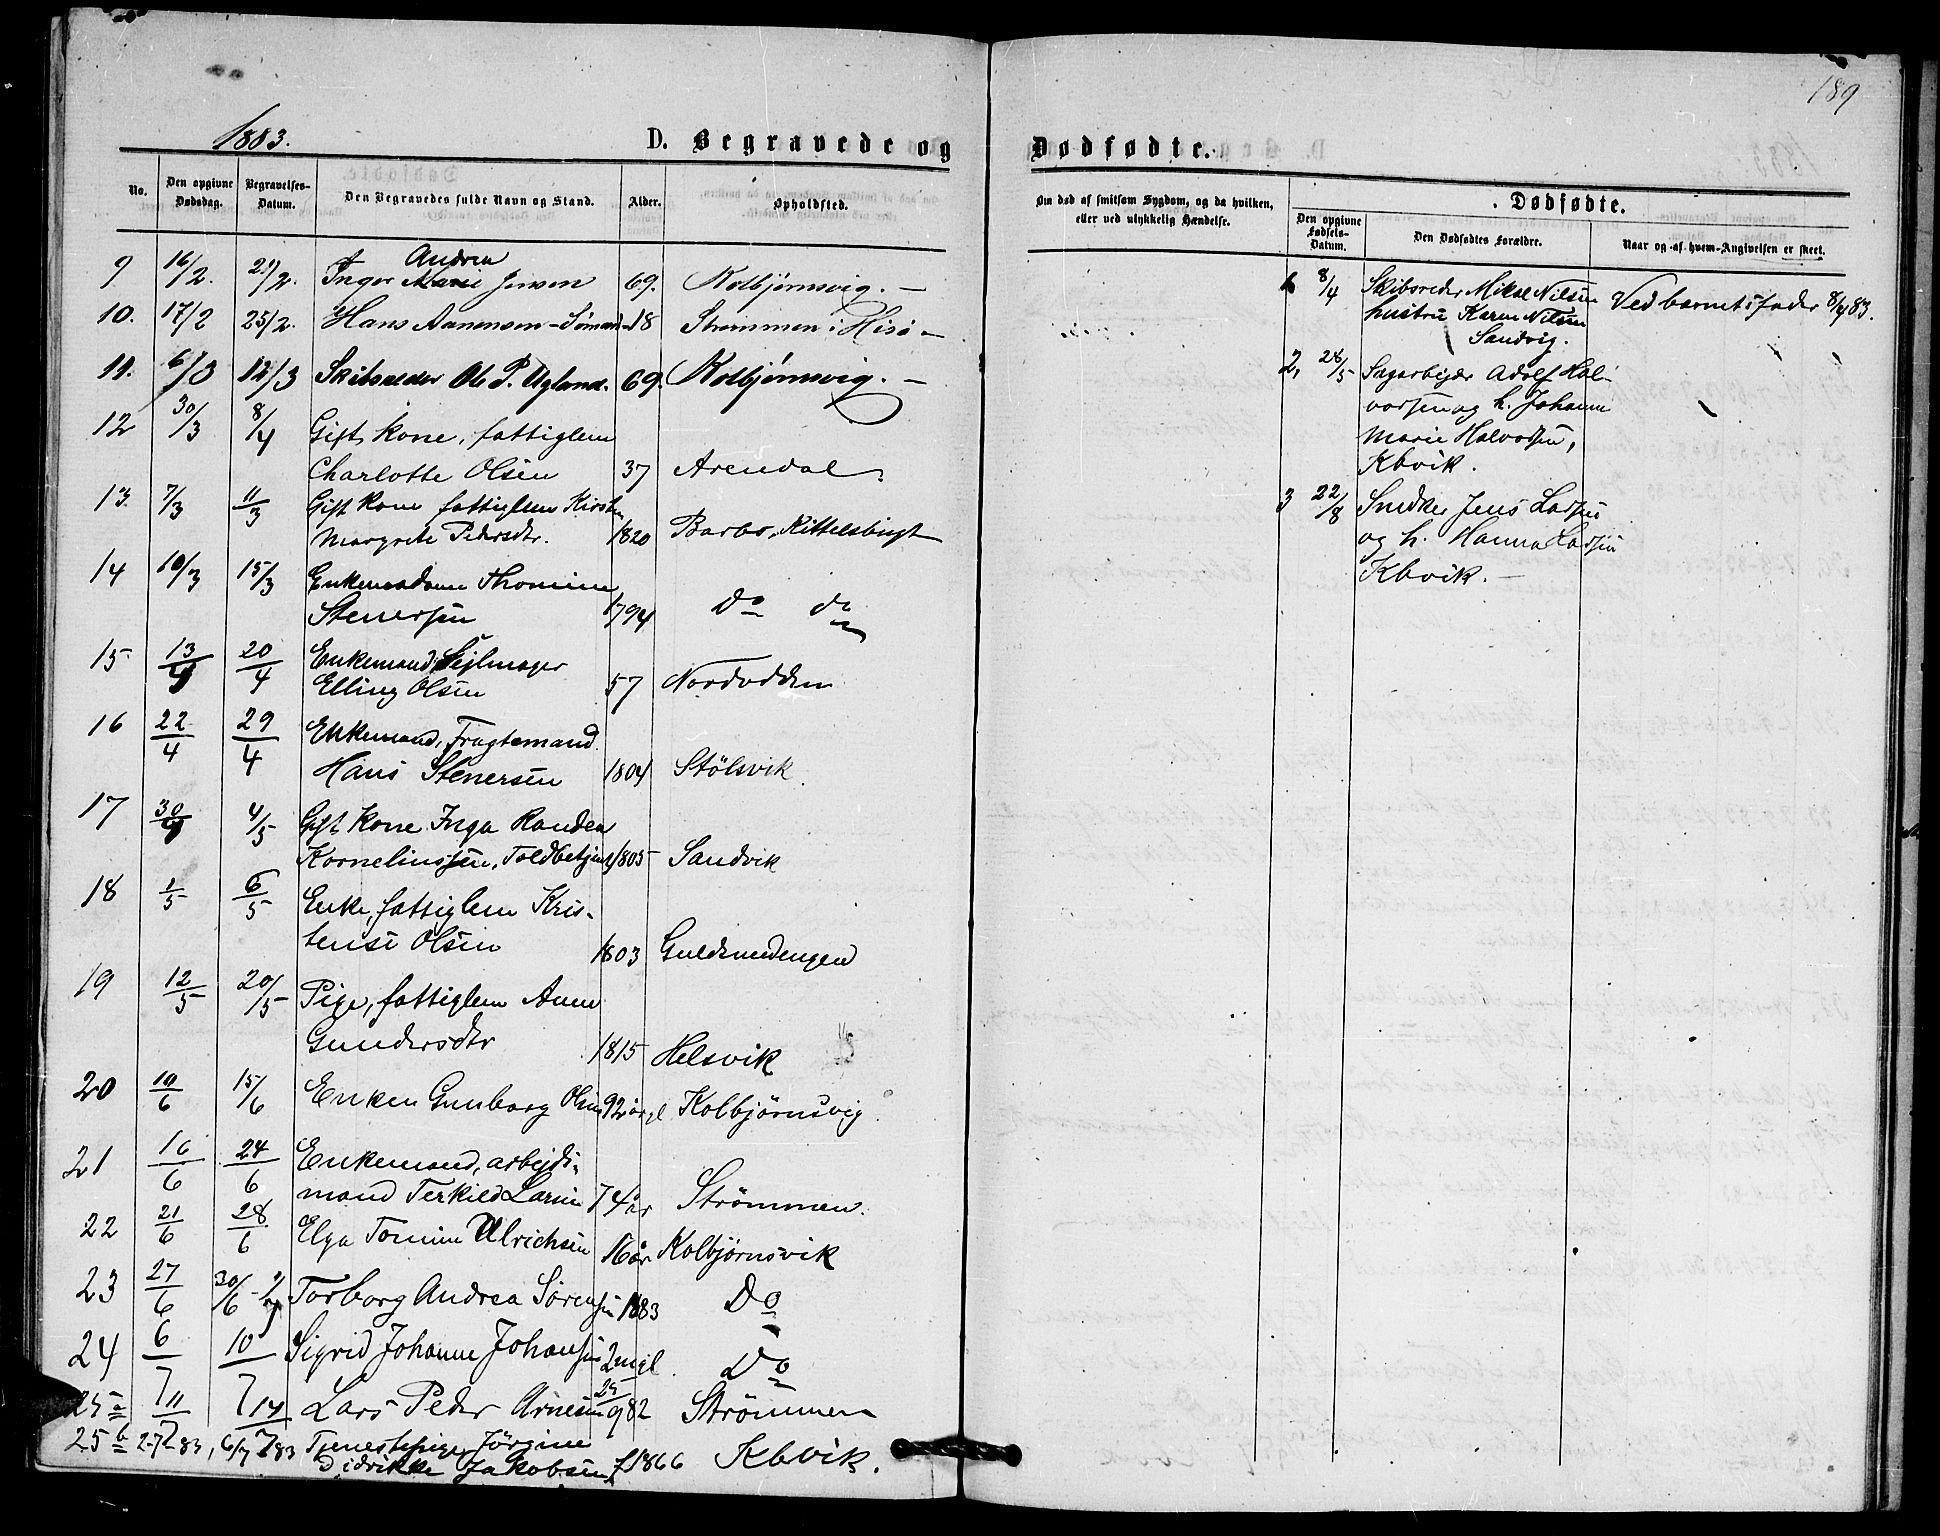 189
1883.
D. Begravede og Dødfødte.
No.
Den opgivne Dødsdag.
Begravelses-Datum.
Den Begravedes fulde Navn og Stand.
Alder.
Opholdsted.
Om død af smitsom Sygdom, og da hvilken, eller ved ulykkelig Hændelse.
Dødfødte.
Den opgivne Fødsels-Datum.
Den Dødfødtes Forældre.
Naar og af hvem Angivelsen er skeet.
Andrea
9 16/2. 21/2. Inger Marie Jensen 69. Kolbjørnsvig. —
10. 17/2 25/2. Hans Aanensen - Sømand 18 Strømmen i Hisø —
11. 6/3 12/3 Skibsreder Ole P. Ugland. 69. Kolbjørnsvig. —
12 30/3 8/4 Gift kone, fattiglem
Charlotte Olsen 37 Arendal
13. 7/3 11/3 Gift kone fattiglem Kirsten
Margrete Pedersdtr. 1820 Barbo, Kittelsbugt
14 10/3 15/3 Enkemadam Thomine
Stenersen 1794 Do do
15 13/4 20/4 Enkemand, Sejlmager
Elling Olsen 57 Nordodden
16 22/4 29/4 Enkemand, Fragtemand
Hans Stenersen 1804 Stølsvik
17 30/4 4/5 Gift kone Inga Randea
Korneliussen, Toldbetjent 1805 Sandvik
18 1/5 6/5 Enke, fattiglem Kris-
tense Olsen 1803 Guldsmedengen
19 12/5 20/5 Pige, fattiglem Anne
Gundersdtr 1815 Helsvik
20 10/6 15/6 Enken Gunborg Olsen 92 år gl Kolbjørnsvig.
21 16/6 24/6 Enkemand, arbejds-
mand Terkild Larsen 74 år Strømmen.
22 21/6 28/6 Elga Tomine Ulrichsen 16 år Kolbjørnsvik
23 27/6 30/6 - 1/7 Torborg Andrea Sørensen 1883 Do
24 6/7 10/7 Sigrid Johanne Johansen 2 m gl. Do
25 a 11/7 14/7 Lars Peder Arnesen 25/9 82 Strømmen
25 b 2-7-83, 6/7 83 Tjenestepige Jørgine
Didrikke Jakobsen f 1866 Kbvik.
1 8/4 Skibsreder Mikal Nilsen Ved barnets fader 8/4 83.
hustru Karen Nilsen
Sandvig.
2, 28/5 Sagarbejder Adolf Hal-
vorsen og h. Johanne
Marie Halvorsen,
Kbvik.
3 22/8 Snedker Jens Larsen
og h. Hanna Larsen
Kbvik. —